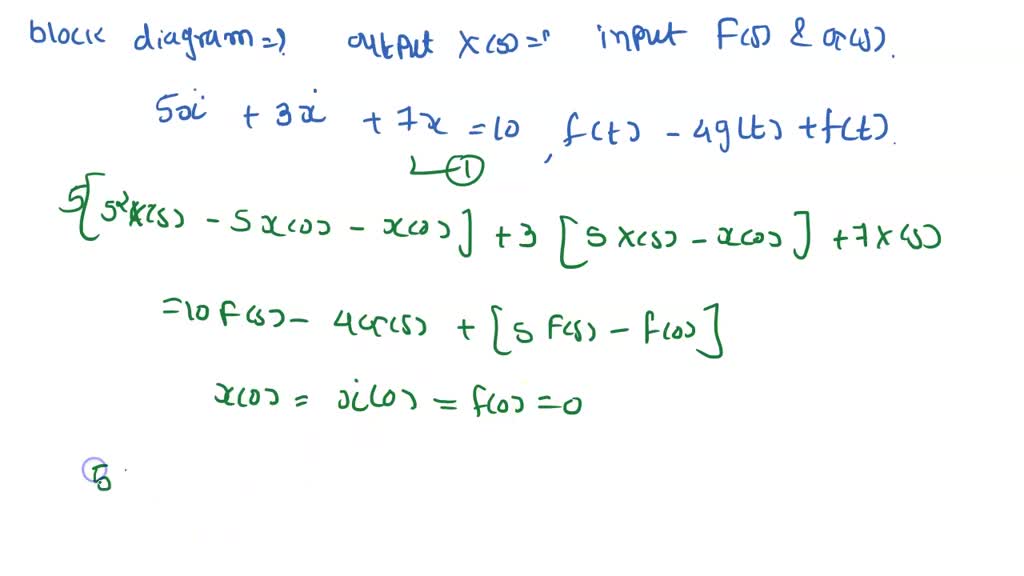 block diagram =? output X(s) =? input F(s) & G(s).
5ẍ + 3ẋ + 7x = 10, f(t) - 4g(t) + f(t).
①
5[s²X(s) - sx(0) - x(0)] + 3 [sX(s) - x(0)] + 7X(s)
= 10 F(s) - 4G(s) + [s F(s) - f(0)]
x(0) = ẋ(0) = f(0) = 0
5